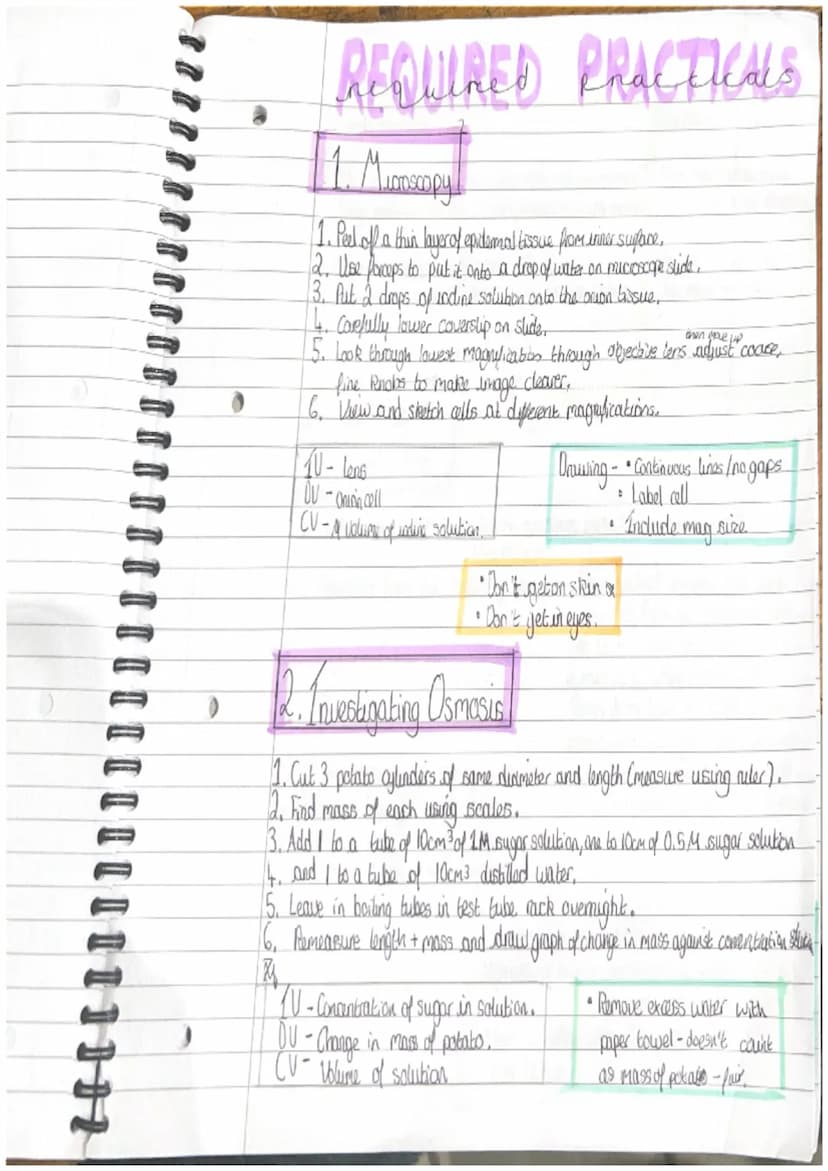 REQUIRED PRACTICALS
required practicals
1. Microscopy
1. Peel off a thin layer of epidermal tissue from inner surface.
2. Use forceps to put it onto a drop of water on microscope slide.
3. Put 2 drops of iodine solution onto the onion tissue.
4. Carefully lower coverslip on slide.
then move up
5. Look through lowest magnification through objective lens adjust coarse,
fine knobs to make image clearer.
6. View and sketch cells at different magnifications.
IV - Lens
DV - Onion cell
CV - Volume of iodine solution.
Drawing - • Continuous lines/no gaps
• Label cell
• Include mag size
• Don't get on skin
• Don't get in eyes.
2. Investigating Osmosis
1. Cut 3 potato cylinders of same diameter and length (measure using ruler).
2. Find mass of each using scales.
3. Add 1 to a tube of 10cm³ of 1M sugar solution, one to 10cm of 0.5M sugar solution
4. and 1 to a tube of 10cm3 distilled water.
5. Leave in boiling tubes in test tube rack overnight.
6. Remeasure length + mass and draw graph of change in mass against concentration
IV - Concentration of sugar in solution.
DV - Change in mass of potato.
CV - Volume of solution
• Remove excess water with
paper towel - doesn't count
as mass of potato - fair.